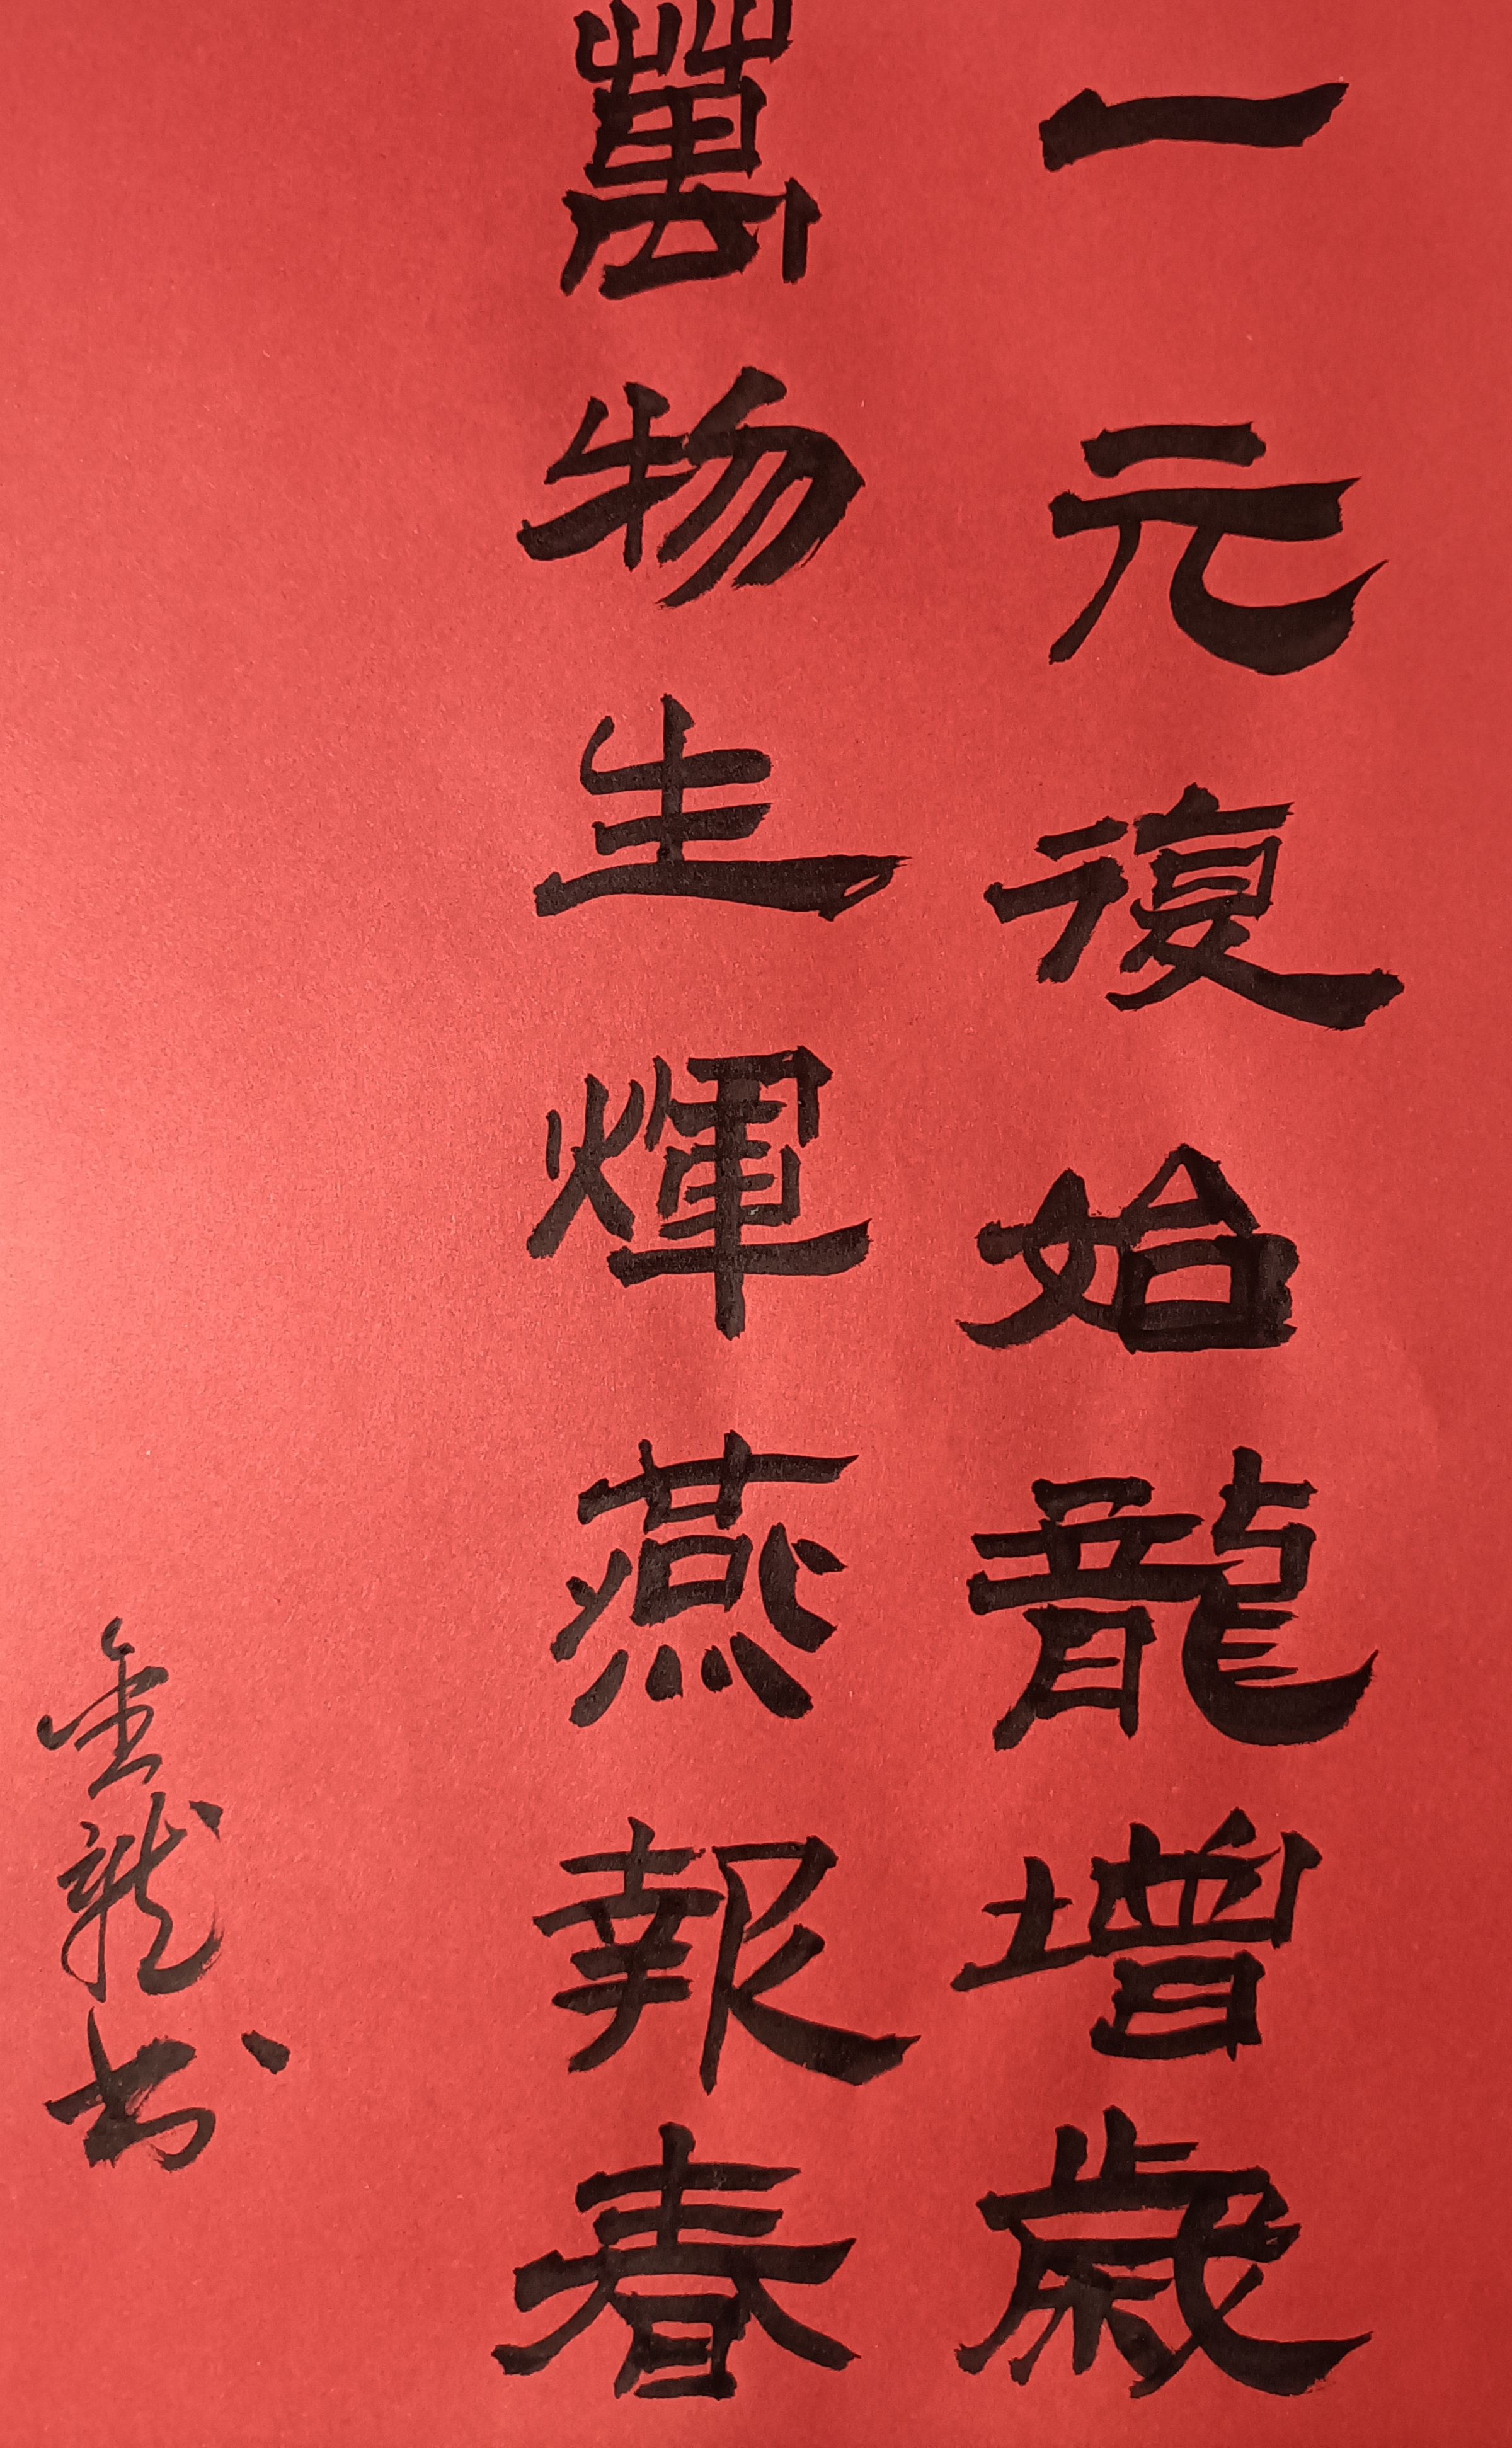 一元復始龍增歲
萬物生輝燕報春
金龍书